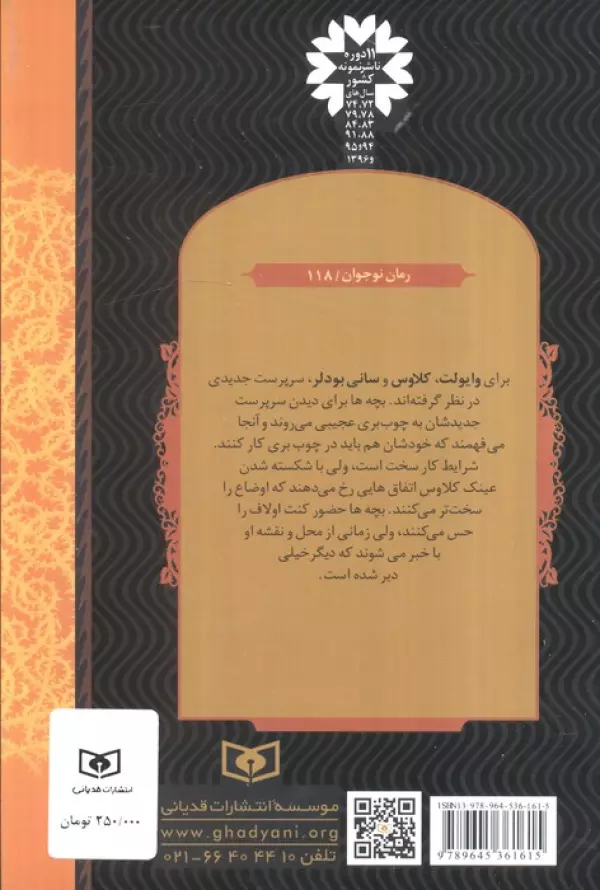 ۱۱ دوره
ناشر نمونه
کشور
سال‌های
۷۴.۷۲
۷۹.۷۸
۸۴.۸۳
۹۱.۸۸
۹۴ و ۹۵
و ۱۳۹۶
رمان نوجوان / ۱۱۸
برای وایولت، کلاوس و سانی بودلر، سرپرست جدیدی
در نظر گرفته‌اند. بچه ها برای دیدن سرپرست
جدیدشان به چوب‌بری عجیبی می‌روند و آنجا
می‌فهمند که خودشان هم باید در چوب بری کار کنند.
شرایط کار سخت است، ولی با شکسته شدن
عینک کلاوس اتفاق هایی رخ می‌دهند که اوضاع را
سخت‌تر می‌کنند. بچه ها حضور کنت اولاف را
حس می‌کنند، ولی زمانی از محل و نقشه او
با خبر می شوند که دیگر خیلی
دیر شده است.
انتشارات قدیانی
۲۵۰/۰۰۰ تومان
موسسه انتشارات قدیانی
www.ghadyani.org
تلفن ۰۲۱-۶۶ ۴۰ ۴۴ ۱۰
ISBN13 978-964-536-161-5
9 789645 361615